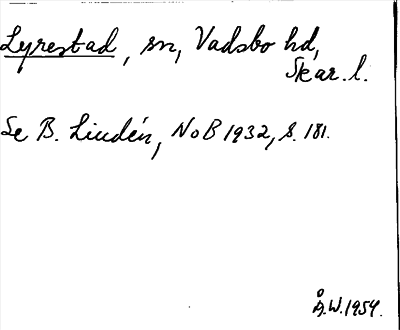 Lyrestad, sn, Vadsbo hd,
Skar. l.
Se B. Lindén, NoB 1932, s. 181.
Å.W. 1954.